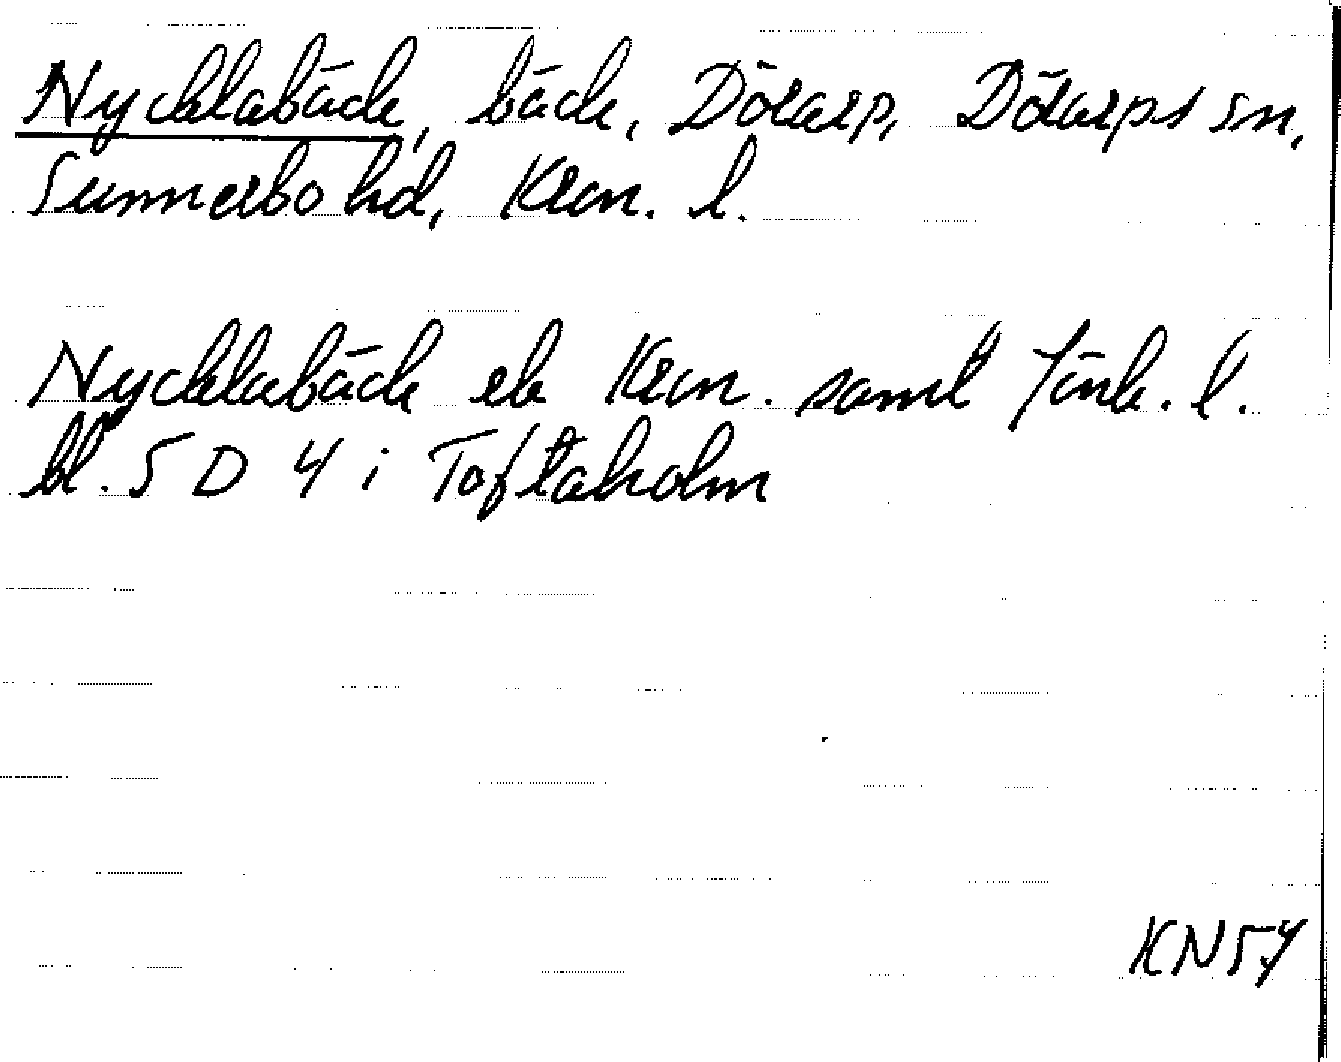 Nycklabäck, bäck, Dörarp, Dörarps sn,
Sunnerbo hd, Kron. l.
Nycklabäck ek Kron. samt Jönk. l.
bl. 5 D 4 i Toftaholm
KN57